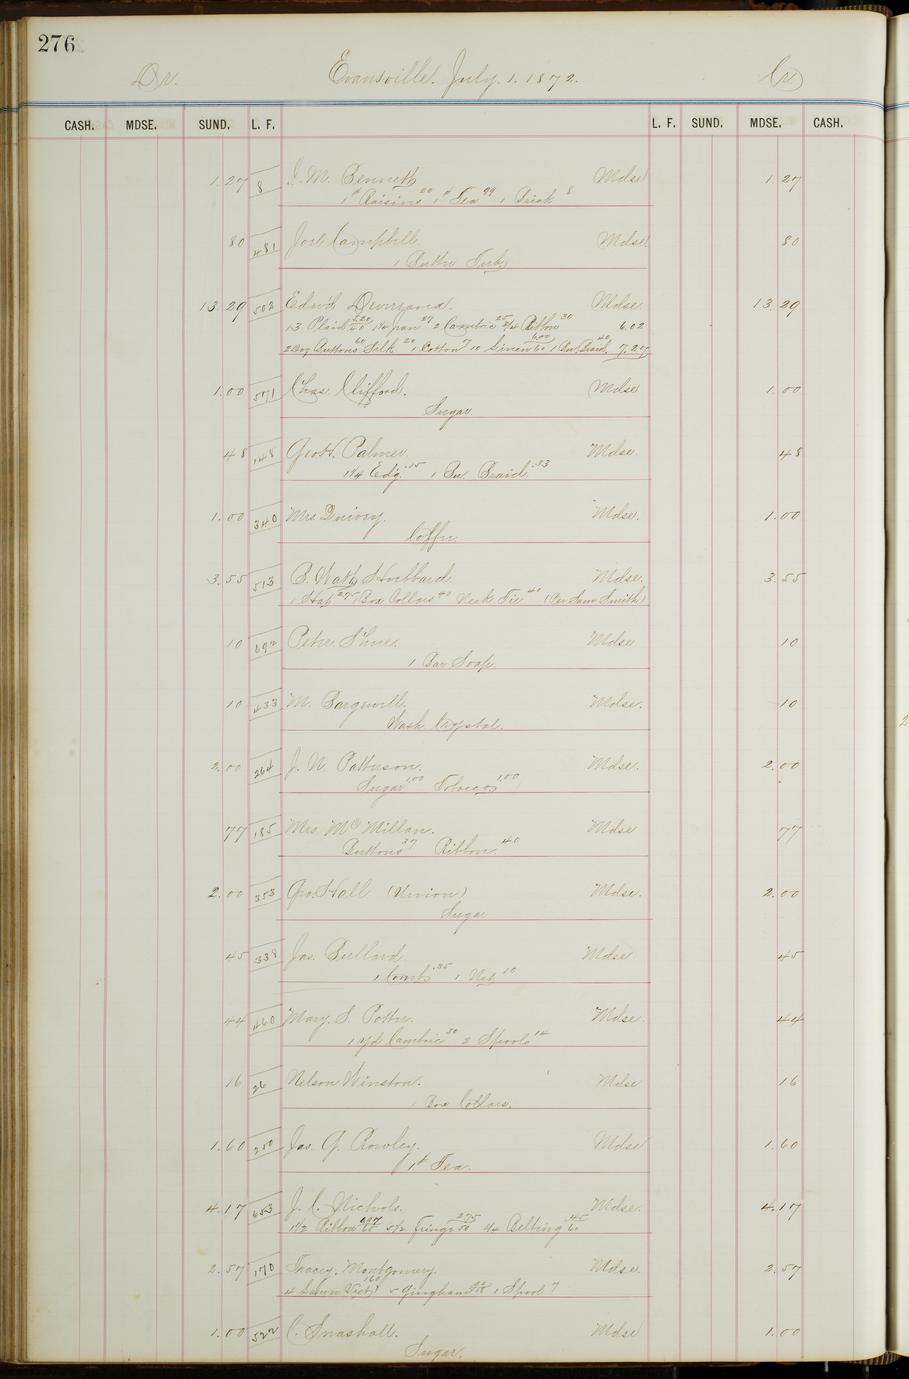 276
Dr. Evansville. July. 1. 1872. Cr
CASH. MDSE. SUND. L. F. L. F. SUND. MDSE. CASH.
1.27 8 J. M. Bennett Mdse 1.27
1# Raisins 20 1# Tea 99 1 Brick 8
80 481 Joel Campbell Mdse 80
1 Butter Tub
13.29 502 Edwd Mdse 13.29
13 Plaid 1¼ 27 2 Cambric 25 2/4 Ribbon 30 6.02
2 Doz Buttons 60 Silk 20 1 Cotton 7 10 Linen 6.00 60 1 Pr Braid 40 7.27
1.00 571 Chas. Clifford. Mdse 1.00
Sugar
48 148 Geo. H. Palmer. Mdse 48
1¼ Edg .15 1 Pr. Braid .33
1.00 340 Mrs Quivey. Mdse. 1.00
Coffee
3.55 513 B. Hubbard. Mdse. 3.55
1 Hat 2.75 1 Box Collars 40 Neck Tie 40 (Per Sam Smith)
10 692 Peter Shine. Mdse 10
1 Bar Soap.
10 433 M. Mdse. 10
Wash Crystal.
2.00 264 J. W. Patterson. Mdse. 2.00
Sugar 1.00 Tobacco 1.00
77 185 Mrs. McMillan. Mdse 77
Buttons 37 Ribbon. 40
2.00 353 Geo. Hall (Union) Mdse. 2.00
Sugar
45 339 Jas. Bullard. Mdse 45
1 Comb .35 1 Net 10
44 460 Mary. S. Potter. Mdse. 44
1 yd Cambric 30 2 Spools 14
16 26 Nelson Winston. Mdse 16
1 Box Collars.
1.60 250 Jas. G. Rowley. Mdse 1.60
1# Tea.
4.17 653 J. C. Nichols. Mdse. 4.17
1½ Ribbon 5½ Fringe 2.75 50 ¾ Belting .45 60
2.57 170 Tracey. Montgomery. Mdse. 2.57
4 Lawn 1.60 5 Gingham 1 Spool 7
1.00 522 C. Snashall. Mdse 1.00
Sugar.